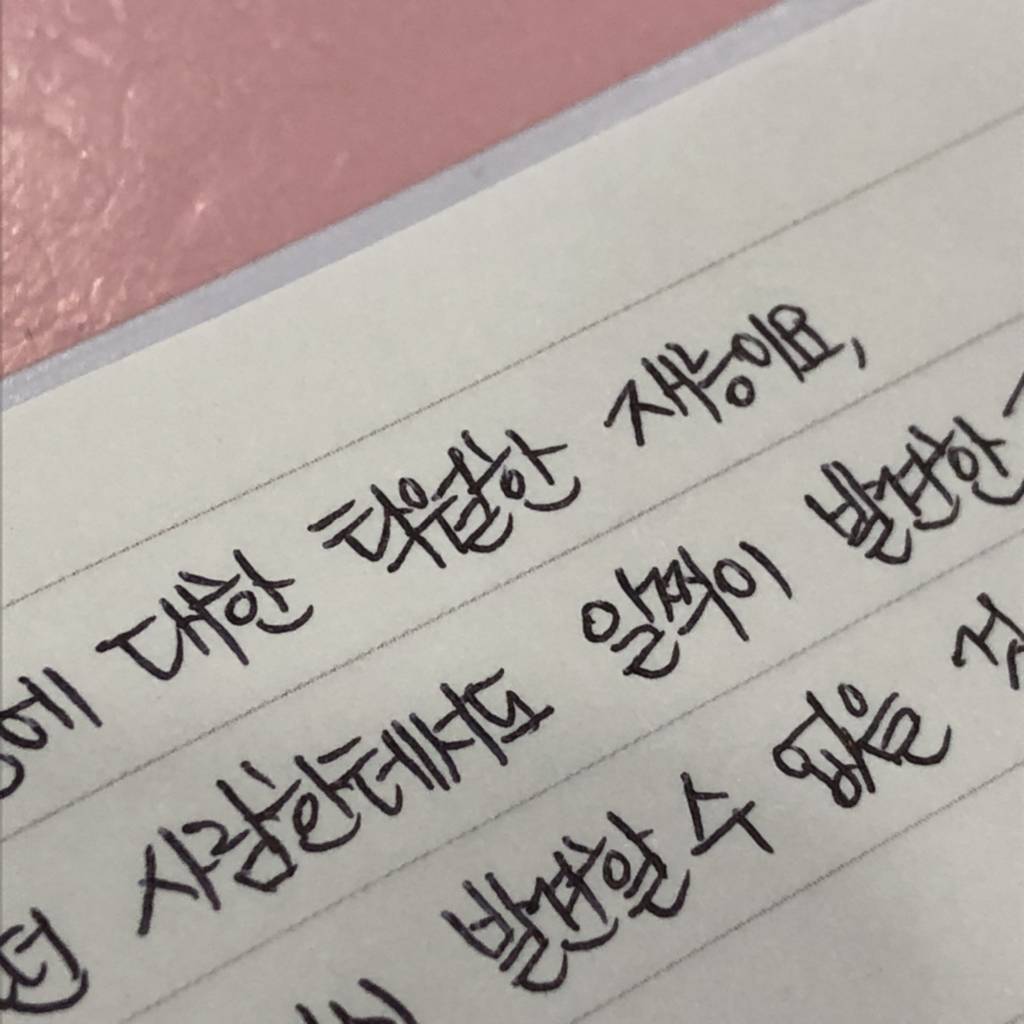 에 대한 탁월한 재능이요,
사람한테서도 일찍이 발견한
발견할 수 없을 것